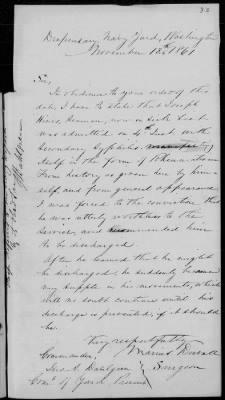 Dispensary, Navy Yard, Washington
November 18th 1861
Sir,
In obedience to your order of this
date, I have to state that Joseph
Seaman, now on Sick List
was admitted on 4th Inst. with
Secondary Syphilis,
itself in the form of Rheumatism
From history as given me by him-
self, and from general appearance
I was forced to the conviction that
he was utterly worthless to the
Service, and recommended him
to be discharged.
After he learned that he might
be discharged, he suddenly became
very supple in his movements, which
will no doubt continue until his
discharge is prevented, if it should
be.
Very respectfully
Commander,
Jno. A. Dahlgren
Surgeon
Com'g Yard